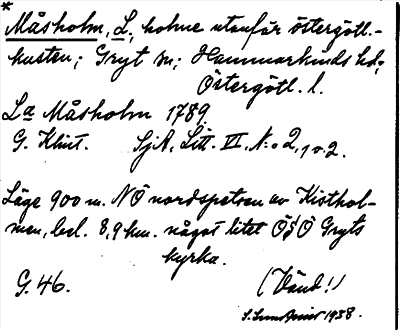 *
Måsholm, L., holme utanför östergötl.-
kusten; Gryt sn; Hammarkinds hd;
Östergötl. l.
La Måsholm 1789.
G. Klint. SjA, Litt. II, N:o 2, 1 o. 2.
Läge 900 m. NÖ nordspetsen av Kisthol-
men, bel. 8,9 km. något litet ÖSÖ Gryts
kyrka.
G. 46. (Vänd!)
1938.